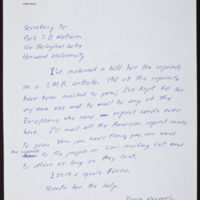 Secretary to
Prof. J. D. Watson
The Biological Labs
Harvard University
I've received a bill for the reprints
on J.M.B. article. 150 of the reprints
have been mailed to you; I've kept 50 for
my own use and to mail to any of the
Europeans who send reprint cards.
I'll mail all the American reprint cards
to you. When you have time, you can send
the reprints to the people on Jim's mailing list and
to others as long as they last.
Thanks for the help.